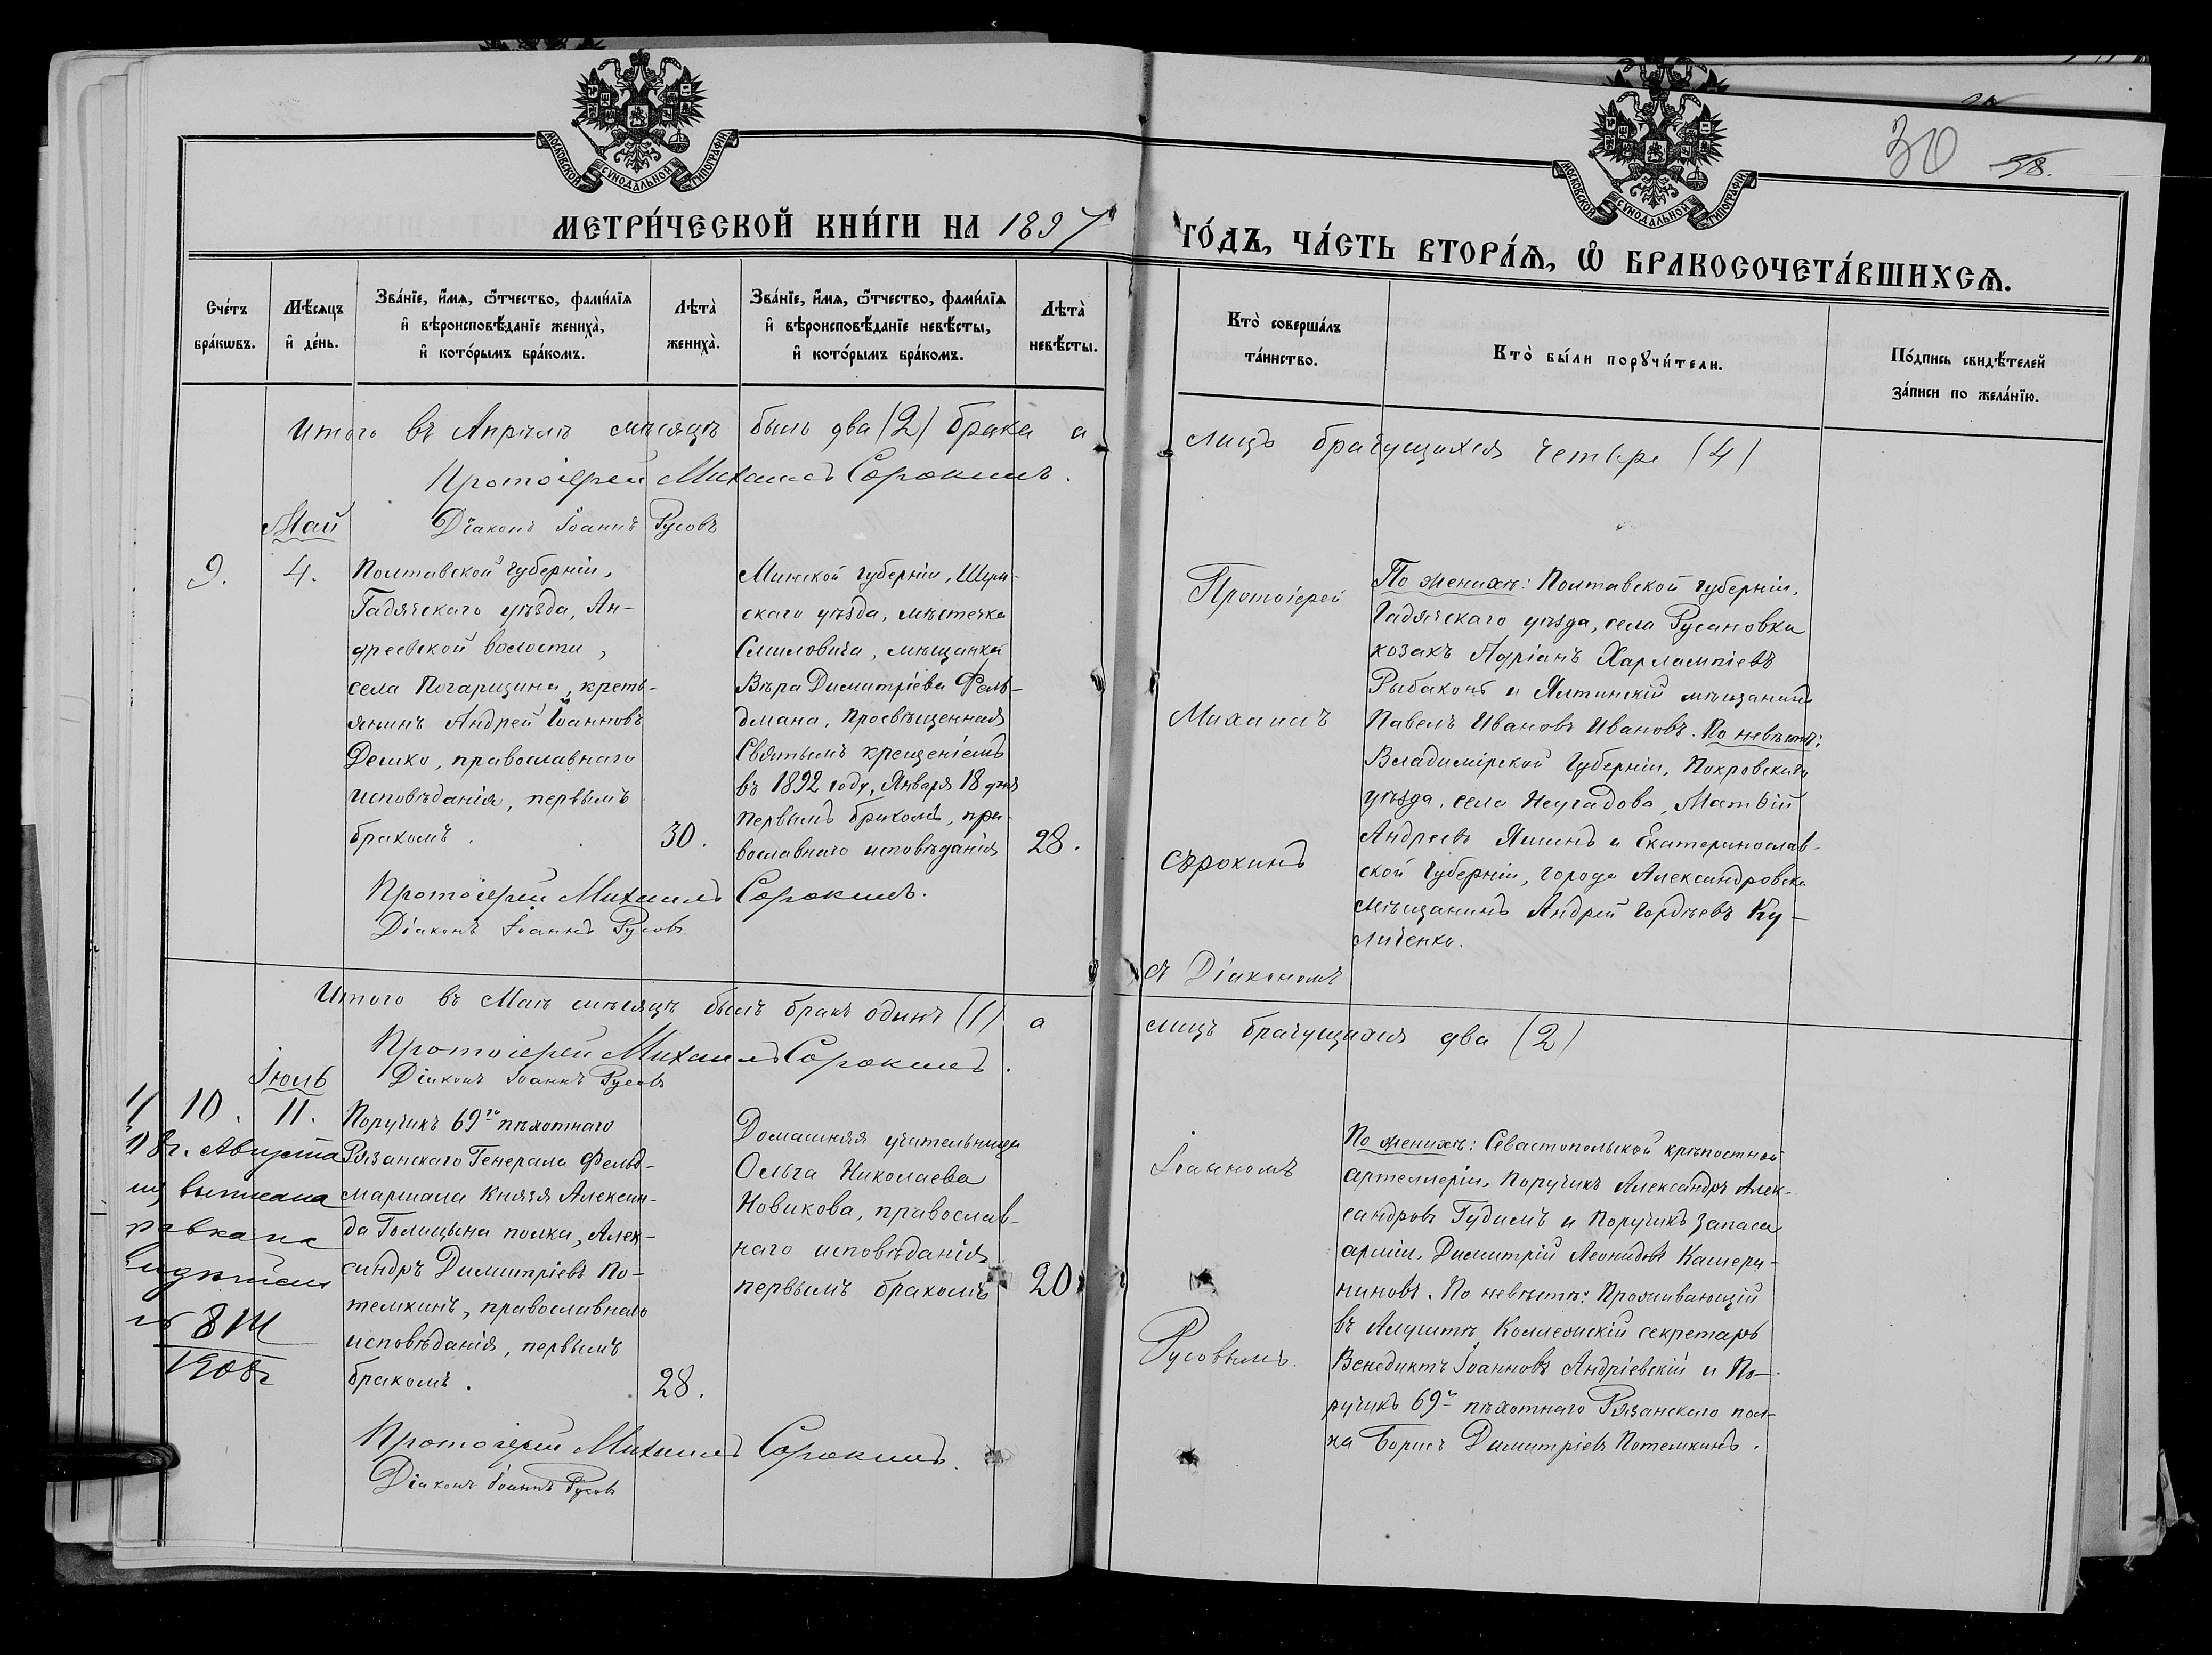 МОСКОВСКОЙ СѴНОДАЛЬНОЙ ТИПОГРАФІИ
МОСКОВСКОЙ СѴНОДАЛЬНОЙ ТИПОГРАФІИ
30 58.
МЕТРИ́ЧЕСКОЙ КНИ́ГИ НА 1897 ГО́ДЪ, ЧА́СТЬ ВТОРА́Ѧ, Ѽ БРАКОСОЧЕТА́ВШИХСѦ.
Сче́тъ бра́кωвъ.
Мѣ́сѧцъ и҆ де́нь.
Зва́нїе, и҆́мѧ, ѻ҆́тчество, фами́лїѧ
и҆ вѣроисповѣ́данїе жениха̀,
и҆ кото́рымъ бра́комъ.
Лѣта̀ жениха̀.
Зва́нїе, и҆́мѧ, ѻ҆́тчество, фами́лїѧ
и҆ вѣроисповѣ́данїе невѣ́сты,
и҆ кото́рымъ бра́комъ.
Лѣта̀ невѣ́сты.
Кто̀ соверша́лъ та́инство.
Кто̀ бы́ли порꙋчи́тели.
По́дпись свидѣ́телей за́писи по жела́нїю.
Итого въ Апрѣлѣ мѣсяцѣ было два (2) брака а лицъ брачущихся четыре (4)
Протоіерей Михаилъ Сорокинъ.
Май
Діаконъ Іоаннъ Русовъ
9. 4.
Полтавской губерніи,
Гадячскаго уѣзда, Ан-
дреевской волости,
села Погарщина, кресть-
янинъ Андрей Іоанновъ
Демко, православнаго
исповѣданія, первымъ
бракомъ.
30.
Минской губерніи, Шуми-
скаго уѣзда, мѣстечка
Смиловича, мѣщанка
Вѣра Димитріева Фель-
дмана, просвѣщенная
Святымъ крещеніемъ
въ 1892 году, Января 18 дня
первымъ бракомъ, пра-
вославнаго исповѣданія
28.
Протоіерей
Михаилъ
Сорокинъ
съ Діакономъ
По женихѣ: Полтавской губерніи,
Гадячскаго уѣзда, села Русановка
козакъ Адріанъ Харлампіевъ
Рыбаконь и Ялтинскій мѣщанинъ
Павелъ Ивановъ Ивановъ. По невѣстѣ:
Владимірской Губерніи, Покровскаго
уѣзда, села Неугадова, Матвій
Андреевъ Яшинъ и Екатеринослав-
ской Губерніи, города Александровска
мѣщанинъ Андрей Гордѣевъ Ку-
личенко.
Протоіерей Михаилъ Сорокинъ.
Діаконъ Іоаннъ Русовъ
Итого въ Маѣ мѣсяцѣ былъ бракъ одинъ (1) а лицъ брачущихся два (2)
Протоіерей Михаилъ Сорокинъ.
Діаконъ Іоаннъ Русовъ
Іюль
10. 11.
Поручикъ 69го пѣхотнаго
Рязанскаго Генерала Фельд-
маршала Князя Алексан-
да Голицына полка, Алек-
сандръ Димитріевъ По-
темкинъ, православнаго
исповѣданія, первымъ
бракомъ.
28.
Домашняя учительница
Ольга Николаева
Новикова, православ-
наго исповѣданія
первымъ бракомъ
20
Іоанномъ
Русовымъ.
По женихѣ: Севастопольской крѣпостной
артиллеріи, Поручикъ Александръ Алек-
сандровъ Гудимъ и Поручикъ запаса
арміи, Димитрій Леонидовъ Кашери-
ниновъ. По невѣстѣ: Проживающій
въ Алуштѣ Коллежскій секретарь
Венедиктъ Іоанновъ Андріевскій и По-
ручикъ 69го пѣхотнаго Рязанскаго пол-
ка Борисъ Димитріевъ Потемкинъ.
08г. Августа
выписана
№ 811
1908г
Протоіерей Михаилъ Сорокинъ.
Діаконъ Іоаннъ Русовъ